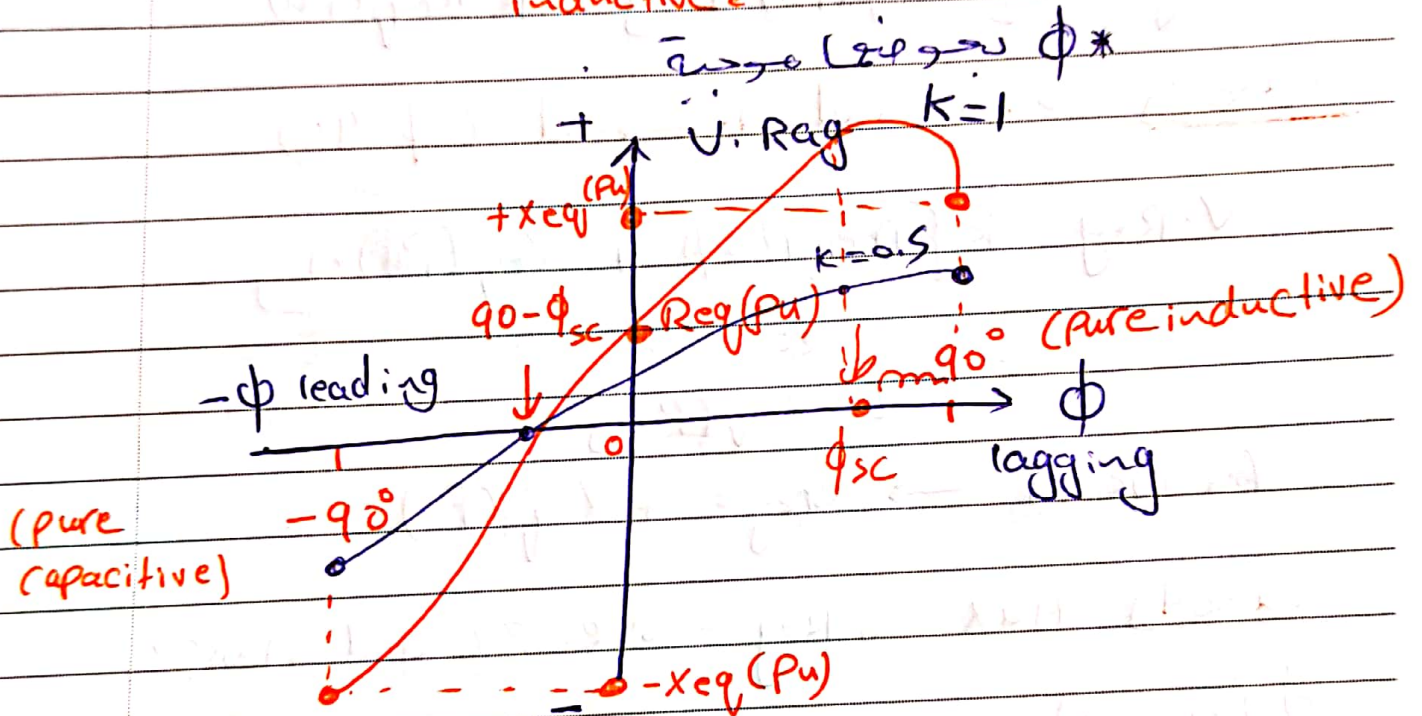 inductive
* ϕ نعوض
+
V. Rag
K=1
+Xeq (Pu)
K=0.5
90-ϕsc
Req(Pu)
90° (Pure inductive)
-ϕ leading
0
ϕsc
ϕ
lagging
(pure
capacitive)
-90°
-Xeq (Pu)
-